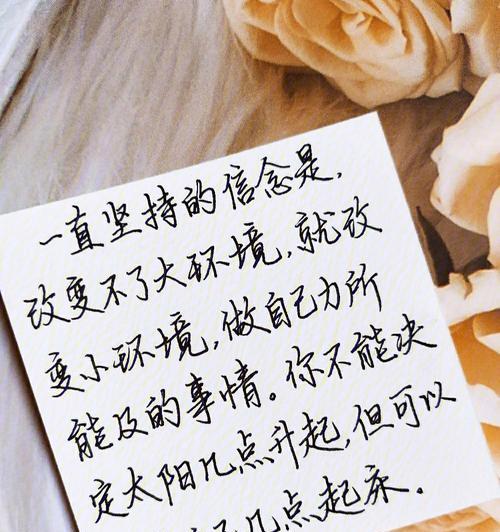 一直坚持的信念是,
改变不了大环境,就改
变小环境,做自己力所
能及的事情。你不能决
定太阳几点升起,但可以
几点起床.